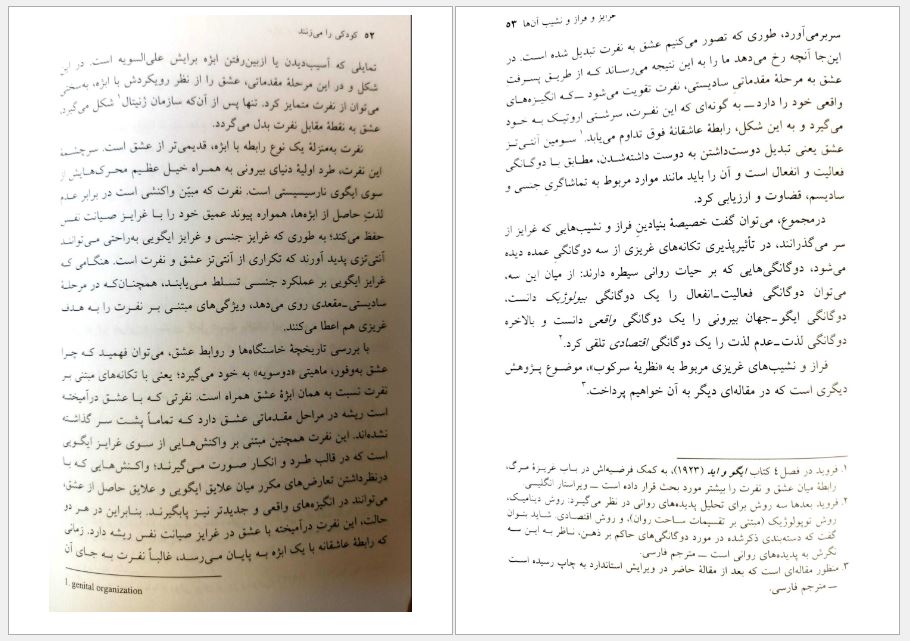 ۵۲ کودکی را می‌زنند
تمایلی که آسیب‌دیدن یا ازبین‌رفتن ابژه برایش علی‌السویه است. در این
شکل و در این مرحلهٔ مقدماتی، عشق را از نظر رویکردش با ابژه، به‌سختی
می‌توان از نفرت متمایز کرد. تنها پس از آن‌که سازمان ژنیتال۱ شکل می‌گیرد،
عشق به نقطهٔ مقابل نفرت بدل می‌گردد.
نفرت به‌منزلهٔ یک نوع رابطه با ابژه، قدیمی‌تر از عشق است. سرچشمهٔ
این نفرت، طرد اولیهٔ دنیای بیرونی به همراه خیل عظیم محرک‌هایش از
سوی ایگوی نارسیسیستی است. نفرت که مبیّن واکنشی است در برابر عدم
لذتِ حاصل از ابژه‌ها، همواره پیوند عمیق خود را با غرایز صیانت نفس
حفظ می‌کند؛ به طوری که غرایز جنسی و غرایز ایگویی به‌راحتی می‌توانند
آنتی‌تزی پدید آورند که تکراری از آنتی‌تز عشق و نفرت است. هنگامی که
غرایز ایگویی بر عملکرد جنسی تسلط می‌یابند، همچنان‌که در مرحلهٔ
سادیستی-مقعدی روی می‌دهد، ویژگی‌های مبتنی بر نفرت را به هدف
غریزی هم اعطا می‌کنند.
با بررسی تاریخچهٔ خاستگاه‌ها و روابط عشق، می‌توان فهمید که چرا
عشق به‌وفور، ماهیتی «دوسویه» به خود می‌گیرد؛ یعنی با تکانه‌های مبتنی بر
نفرت نسبت به همان ابژهٔ عشق همراه است. نفرتی که با عشق درآمیخته
است ریشه در مراحل مقدماتی عشق دارد که تماماً پشت سر گذاشته
نشده‌اند. این نفرت همچنین مبتنی بر واکنش‌هایی از سوی غرایز ایگویی
است که در قالب طرد و انکار صورت می‌گیرند؛ واکنش‌هایی که با
درنظرداشتن تعارض‌های مکرر میان علایق ایگویی و علایق حاصل از عشق،
می‌توانند در انگیزه‌های واقعی و جدیدتر نیز پابگیرند. بنابراین در هر دو
حالت، این نفرتِ درآمیخته با عشق در غرایز صیانت نفس ریشه دارد. زمانی
که رابطهٔ عاشقانه با یک ابژه به پایان می‌رسد، غالباً نفرت به جای آن
1. genital organization
غرایز و فراز و نشیب آن‌ها ۵۳
سربرمی‌آورد، طوری که تصور می‌کنیم عشق به نفرت تبدیل شده است. در
این‌جا آنچه رخ می‌دهد ما را به این نتیجه می‌رساند که از طریق پسرفت
عشق به مرحلهٔ مقدماتیِ سادیستی، نفرت تقویت می‌شود ــ که انگیزه‌های
واقعی خود را دارد ــ به گونه‌ای که این نفرت، سرشتی اروتیک به خود
می‌گیرد و به این شکل، رابطهٔ عاشقانهٔ فوق تداوم می‌یابد.۱ سومین آنتی‌تز
عشق یعنی تبدیل دوست‌داشتن به دوست داشته‌شدن، مطابق با دوگانگی
فعالیت و انفعال است و آن را باید مانند موارد مربوط به تماشاگری جنسی و
سادیسم، قضاوت و ارزیابی کرد.
درمجموع، می‌توان گفت خصیصهٔ بنیادینِ فراز و نشیب‌هایی که غرایز از
سر می‌گذرانند، در تأثیرپذیری تکانه‌های غریزی از سه دوگانگیِ عمده دیده
می‌شود، دوگانگی‌هایی که بر حیات روانی سیطره دارند: از میان این سه،
می‌توان دوگانگی فعالیت-انفعال را یک دوگانگی بیولوژیک دانست،
دوگانگی ایگو-جهان بیرونی را یک دوگانگی واقعی دانست و بالاخره
دوگانگی لذت-عدم لذت را یک دوگانگی اقتصادی تلقی کرد.۲
فراز و نشیب‌های غریزی مربوط به «نظریهٔ سرکوب»، موضوع پژوهش
دیگری است که در مقاله‌ای دیگر به آن خواهیم پرداخت.۳
۱. فروید در فصل ٤ کتاب ایگو و اید (۱۹۲۳)، به کمک فرضیه‌اش در باب غریزهٔ مرگ،
رابطهٔ میان عشق و نفرت را بیشتر مورد بحث قرار داده است ــ ویراستار انگلیسی
۲. فروید بعدها سه روش برای تحلیل پدیده‌های روانی در نظر می‌گیرد: روش دینامیک،
روش توپولوژیک (مبتنی بر تقسیمات ساحت روان)، و روش اقتصادی. شاید بتوان
گفت که دسته‌بندی ذکرشده در مورد دوگانگی‌های حاکم بر ذهن، ناظر به این سه
نگرش به پدیده‌های روانی است ــ مترجم فارسی.
۳. منظور مقاله‌ای است که بعد از مقالهٔ حاضر در ویرایش استاندارد به چاپ رسیده است
ــ مترجم فارسی.